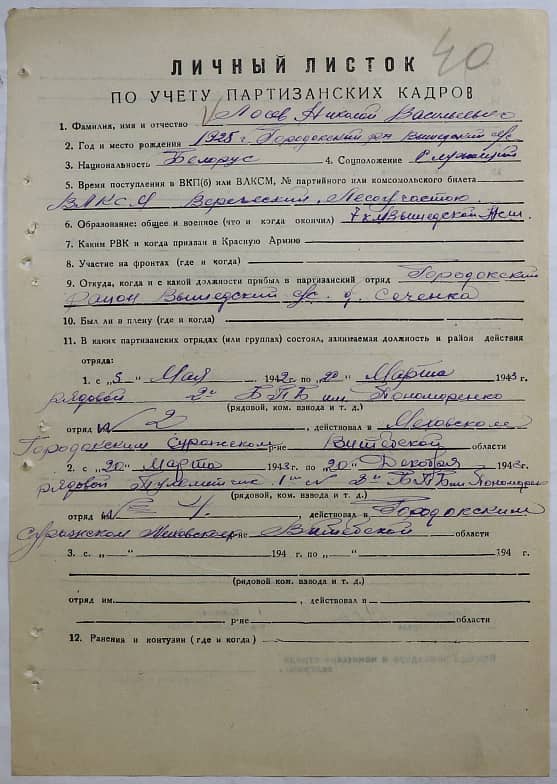 40
ЛИЧНЫЙ ЛИСТОК
ПО УЧЕТУ ПАРТИЗАНСКИХ КАДРОВ
1. Фамилия, имя и отчество Лосев Николай Васильевич
2. Год и место рождения 1925 г. Городокский р-н Вышедский с/с
3. Национальность Белорус 4. Соцположение Служащий
5. Время поступления в ВКП(б) или ВЛКСМ, № партийного или комсомольского билета
ВЛКСМ
6. Образование: общее и военное (что и когда окончил) 7 кл Вышедской
7. Каким РВК и когда призван в Красную Армию
8. Участие на фронтах (где и когда)
9. Откуда, когда и с какой должности прибыл в партизанский отряд Городокский
район Вышедский с/с д. Сеченка
10. Был ли в плену (где и когда)
11. В каких партизанских отрядах (или группах) состоял, занимаемая должность и район действия
отряда:
1. с „5“ Май 1942 г. по „20“ Марта 1943 г.
рядовой 2й БПБ им Пономаренко
(рядовой, ком. взвода и т. д.)
отряд № 2, действовал в Меховском
Городокским Суражском р-не Витебской области
2. с „20“ Марта 1943 г. по „20“ Декабря 1943 г.
рядовой Пулеметчик 2й БПБ им Пономаренко
(рядовой, ком. взвода и т. д.)
отряд 4, действовал в Городокским
Суражском Меховском р-не Витебской области
3. с „ “ 194 г. по „ “ 194 г.
(рядовой, ком. взвода и т. д.)
отряд им. , действовал в
р-не области
12. Ранения и контузии (где и когда)